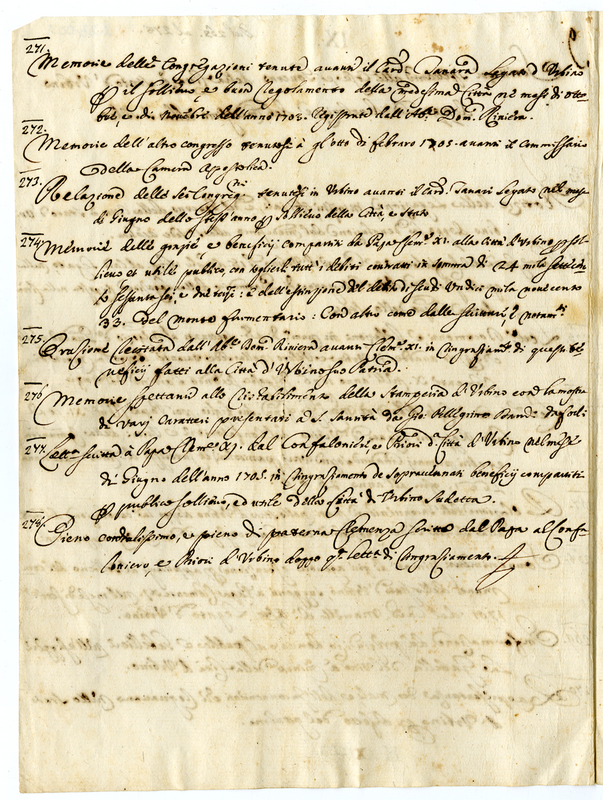 271.
Memorie delle Congregazioni tenute avanti il Card. Tanara Legato d'Urbino
p il sollievo e buon regolamento della medesima Città nè mesi di otto-
bre, e di Novebre dell'anno 1704. registrate dall'Abe. Dom. Riviera.
272.
Memorie dell'altro congresso tenutosi à gl'otto di febraro 1705. avanti il Commissario
della Camera Apostolica.
273.
Relazione delle sei Congregni tenutesi in Urbino avanti il Card. Tanari Legato nel mese
di Giugno dello stess'anno p sollievo della Città, e Stato
274.
Memorie delle grazie, e beneficij compartiti da Papa Clem. XI. alla Città d'Urbino p sol-
lievo et utile publico, con togliere tutti i debiti contratti in somma di 24 mila settecen-
to sesanta sei, e dell'estinzione del debito di scudi undici mila novecento
33. del monte frumentario: Con altro come dalle scritture, e notami
275.
Orazione recitata dall'Abe. Dom. Riviera avanti Clem. XI. in ringraziamto. di questi be-
neficij fatti alla Città d'Urbino sua Patria.
276
Memorie spettanti allo ristabilimento della Stamperia d'Urbino con la mostra
di varij Caratteri presentati à S. Santità da Gio: Pellegrino
277.
Lettа scritta à Papa Clemе XI. dal Confaloniere e Priori di Città d'Urbino nel mese
di Giugno dell'anno 1705. in ringraziamento de sopracennati beneficij compartiti
p publico sollievo, ed utile della Città di Urbino sudetta.
278.
Pieno cordialissimo, e pieno di paterna Clemenza scritto dal Papa al Confa-
loniero, e Priori d'Urbino doppo qta letta di ringraziamento.